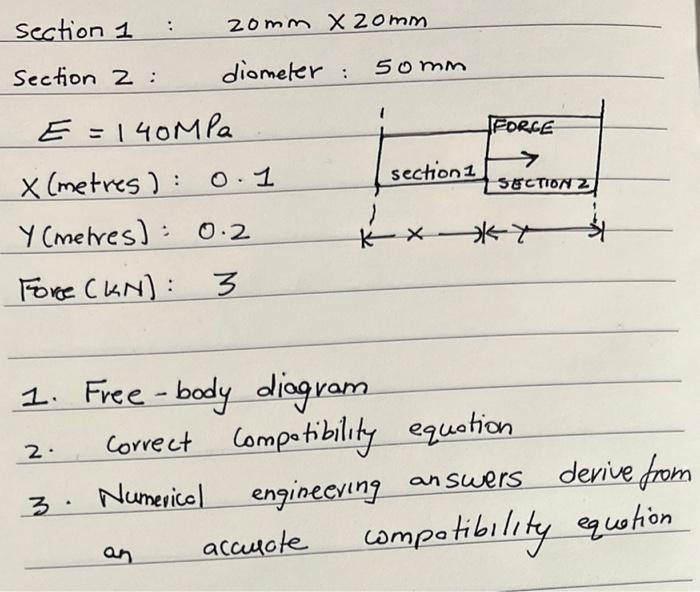 Section 1 : 20mm X 20mm
Section 2 : diometer : 50mm
E = 140MPa
X (metres) : 0.1
Y (metres) : 0.2
Force (kN) : 3
FORCE
section1
SECTION 2
X Y
1. Free-body diagram
2. Correct Compatibility equation
3. Numerical engineering answers derive from
an accurate compatibility equation